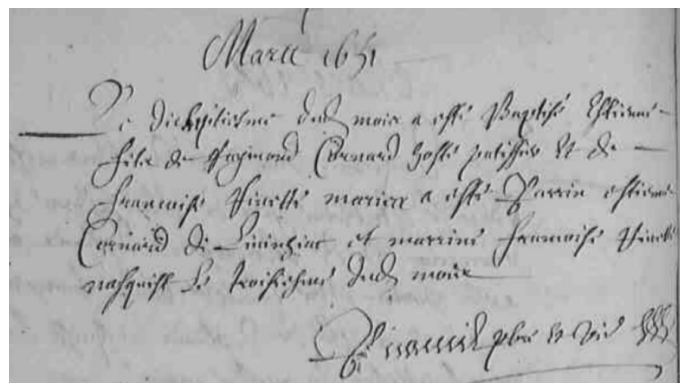 Mars 1651
Le dixhuictiesme dud. mois a esté Baptisé Estienne
filz de Raymond Cornard hoste patissier & de
francoise Pinette mariez a esté Parrin estienne
Cornard de et marrine francoise Pinette
nasquist le troisiesme dud. mois
pbre & vic